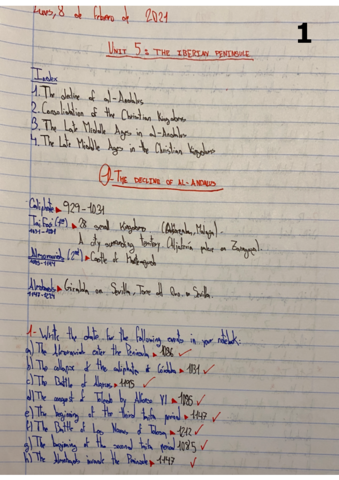 Lunes, 8 de febrero de 2021
1
UNIT 5: THE IBERIAN PENINSULE
Index
1. The decline of al-Andalus
2. Consolidation of the Christian Kingdoms
3. The Late Middle Ages in al-Andalus
4. The Late Middle Ages in the Christian Kingdoms
1. THE DECLINE OF AL-ANDALUS
Caliphate ▸ 929-1031
28 small Kingdoms
A city surrounding territory (Aljafería palace on Zaragoza).
Almoravids (2nd) ▸ Castle of
Almohads ▸ Giralda on Sevilla, Torre del Oro on Sevilla.
1147-
1- Write the dates for the following events in your notebook:
a) The Almoravids enter the Peninsula ▸ 1086 ✓
b) The collapse of the caliphate of Córdoba ▸ 1031 ✓
c) The Battle of Alarcos ▸ 1195 ✓
d) The conquest of Toledo by Alfonso VI ▸ 1085 ✓
e) The beginning of the third taifa period ▸ 1147 ✓
f) The Battle of Las Navas of Tolosa ▸ 1212 ✓
g) The beginning of the second taifa period 1085 ✓
h) The Almohads invade the Peninsula ▸ 1147 ✓